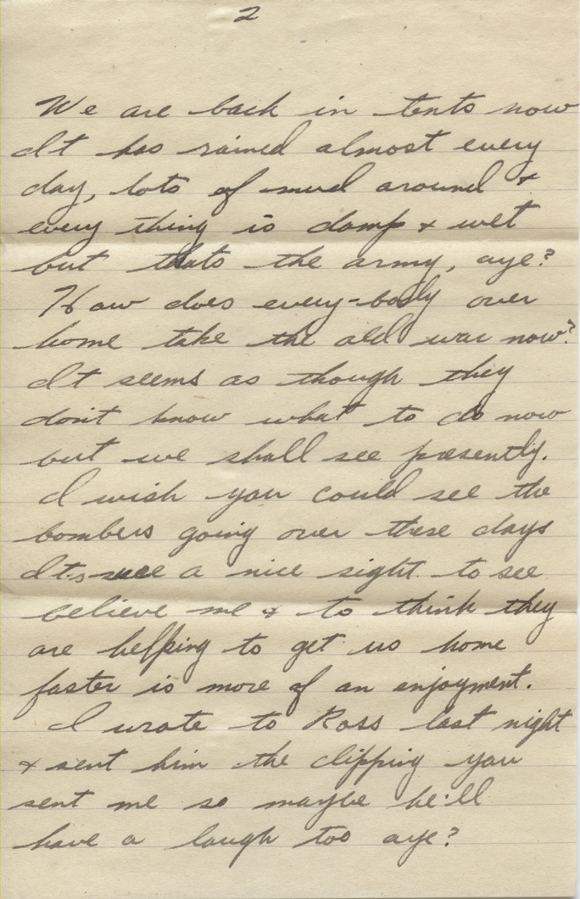 2
We are back in tents now
It has rained almost every
day, lots of mud around &
every thing is damp & wet
but thats the army, aye?
How does every-body over
home take the old war now?
It seems as though they
don't know what to do now
but we shall see presently.
I wish you could see the
bombers going over these days
It's sure a nice sight to see
believe me & to think they
are helping to get us home
faster is more of an enjoyment.
I wrote to Ross last night
& sent him the clipping you
sent me so maybe he'll
have a laugh too aye?